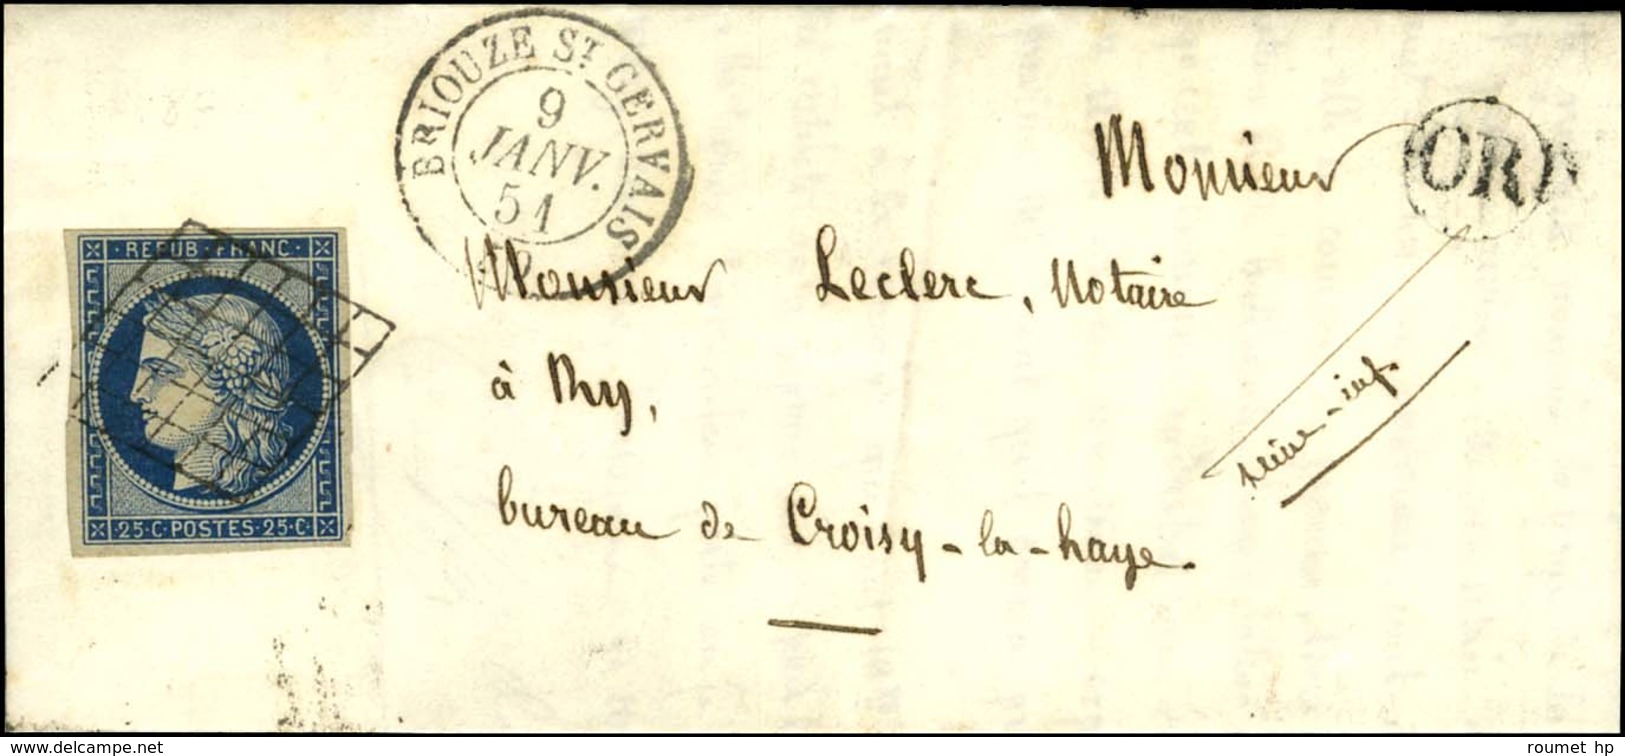 BRIOUZE ST GERVAIS
9
JANV.
51
OR
Monsieur
REPUB · FRANC ·
Monsieur Leclerc, Notaire
à Ry,
seine-inf
bureau de Croisy-la-haye.
25 · C · POSTES · 25 · C ·
www.delcampe.net
roumet hp